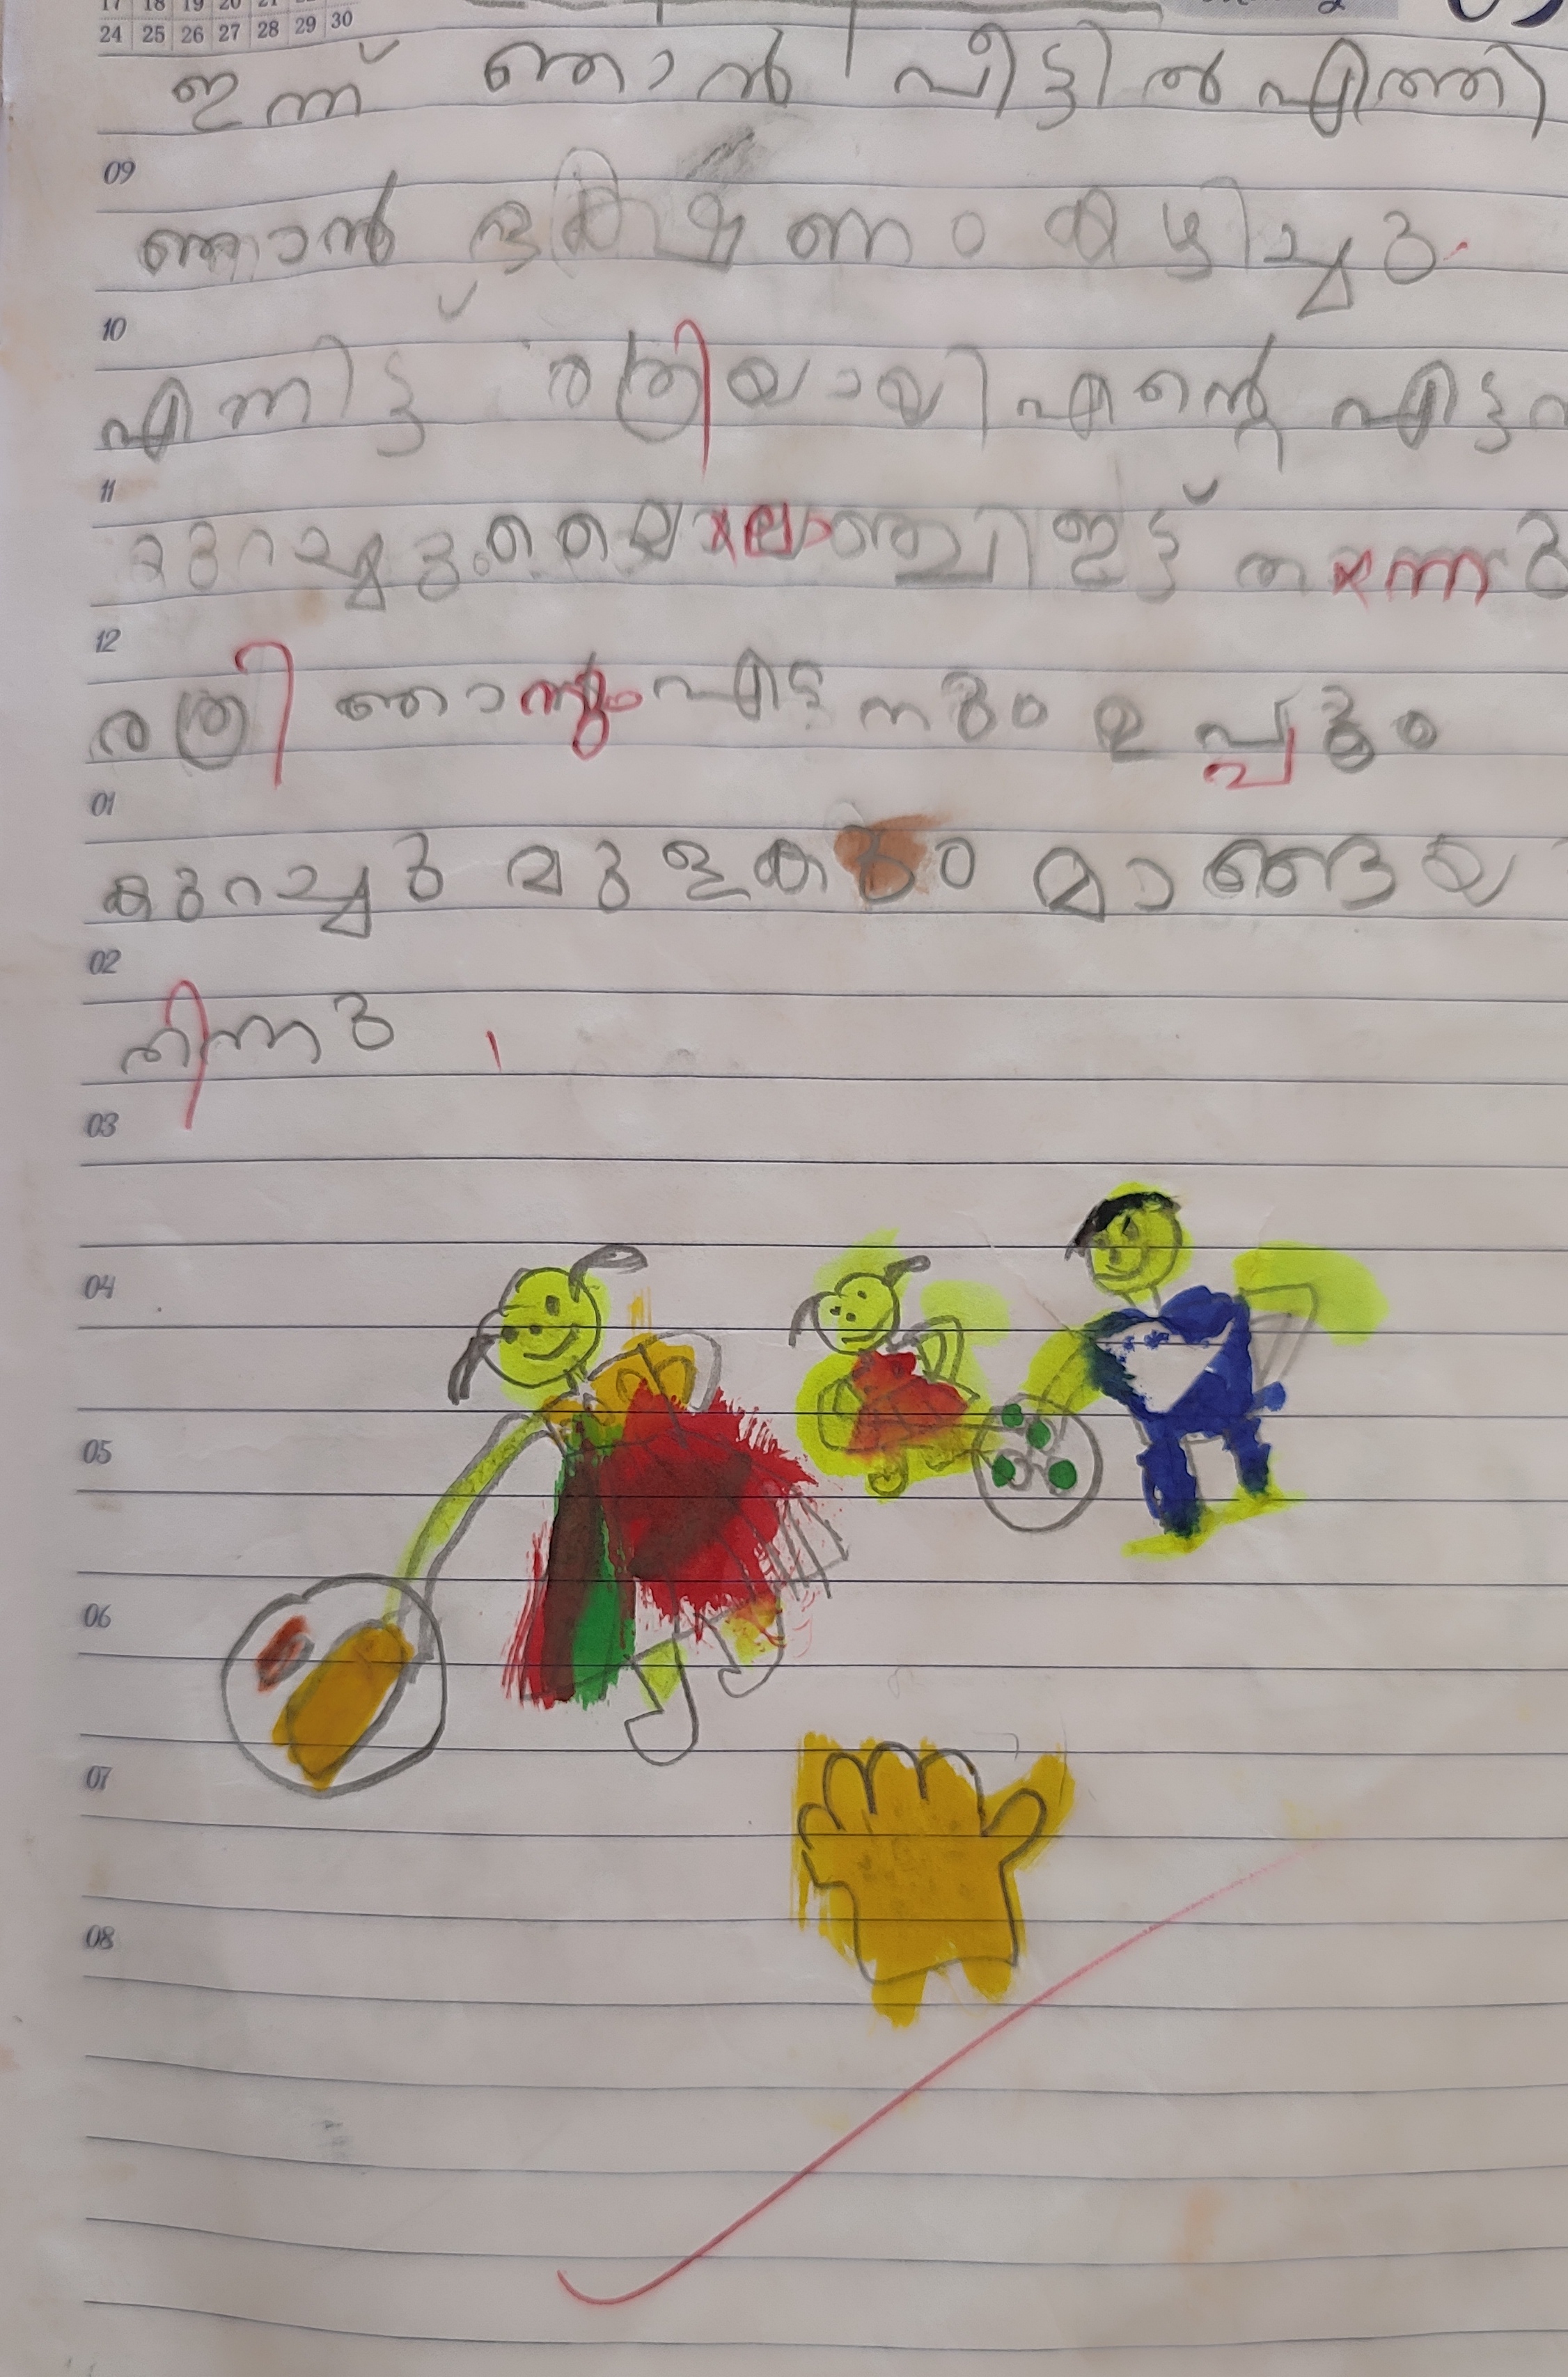 17 18 19 20 21
24 25 26 27 28 29 30
ഇന്ന് ഞാൻ വീട്ടിൽ എത്തി
09
ഞാൻ ഭക്ഷണം കഴിച്ചു.
10
എന്നിട്ട് രത്രിയായി എന്റെ ഏട്ടന
11
കുറച്ചു മൈലാഞ്ചി ഇട്ട് തന്നു
12
രത്രി ഞാനും ഏട്ടനും ഉപ്പും
01
കുറച്ചു മുളകും മാങ്ങയ
02
തിന്നു
03
04
05
06
07
08